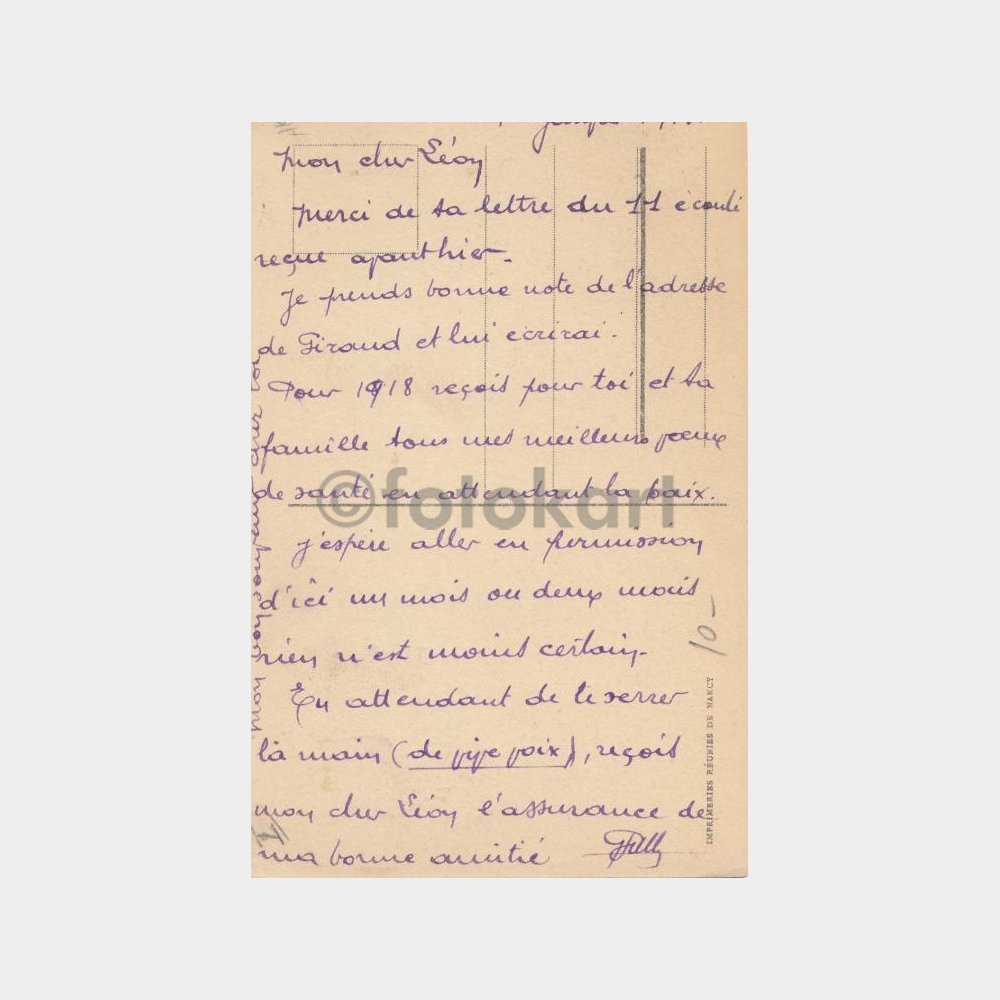 Mon cher Léon
Merci de ta lettre du 11 écoulé
reçue avanthier.
Je prends bonne note de l'adresse
de Giraud et lui écrirai.
Pour 1918 reçois pour toi et ta
famille tous mes meilleurs voeux
de santé en attendant la paix.
J'espère aller en permission
d'ici un mois ou deux mais
rien n'est moins certain.
En attendant de te serrer
la main (de), reçois
mon cher Léon l'assurance de
ma bonne amitié
Mon bon souvenir
10-
IMPRIMERIES RÉUNIES DE NANCY
©fotokart